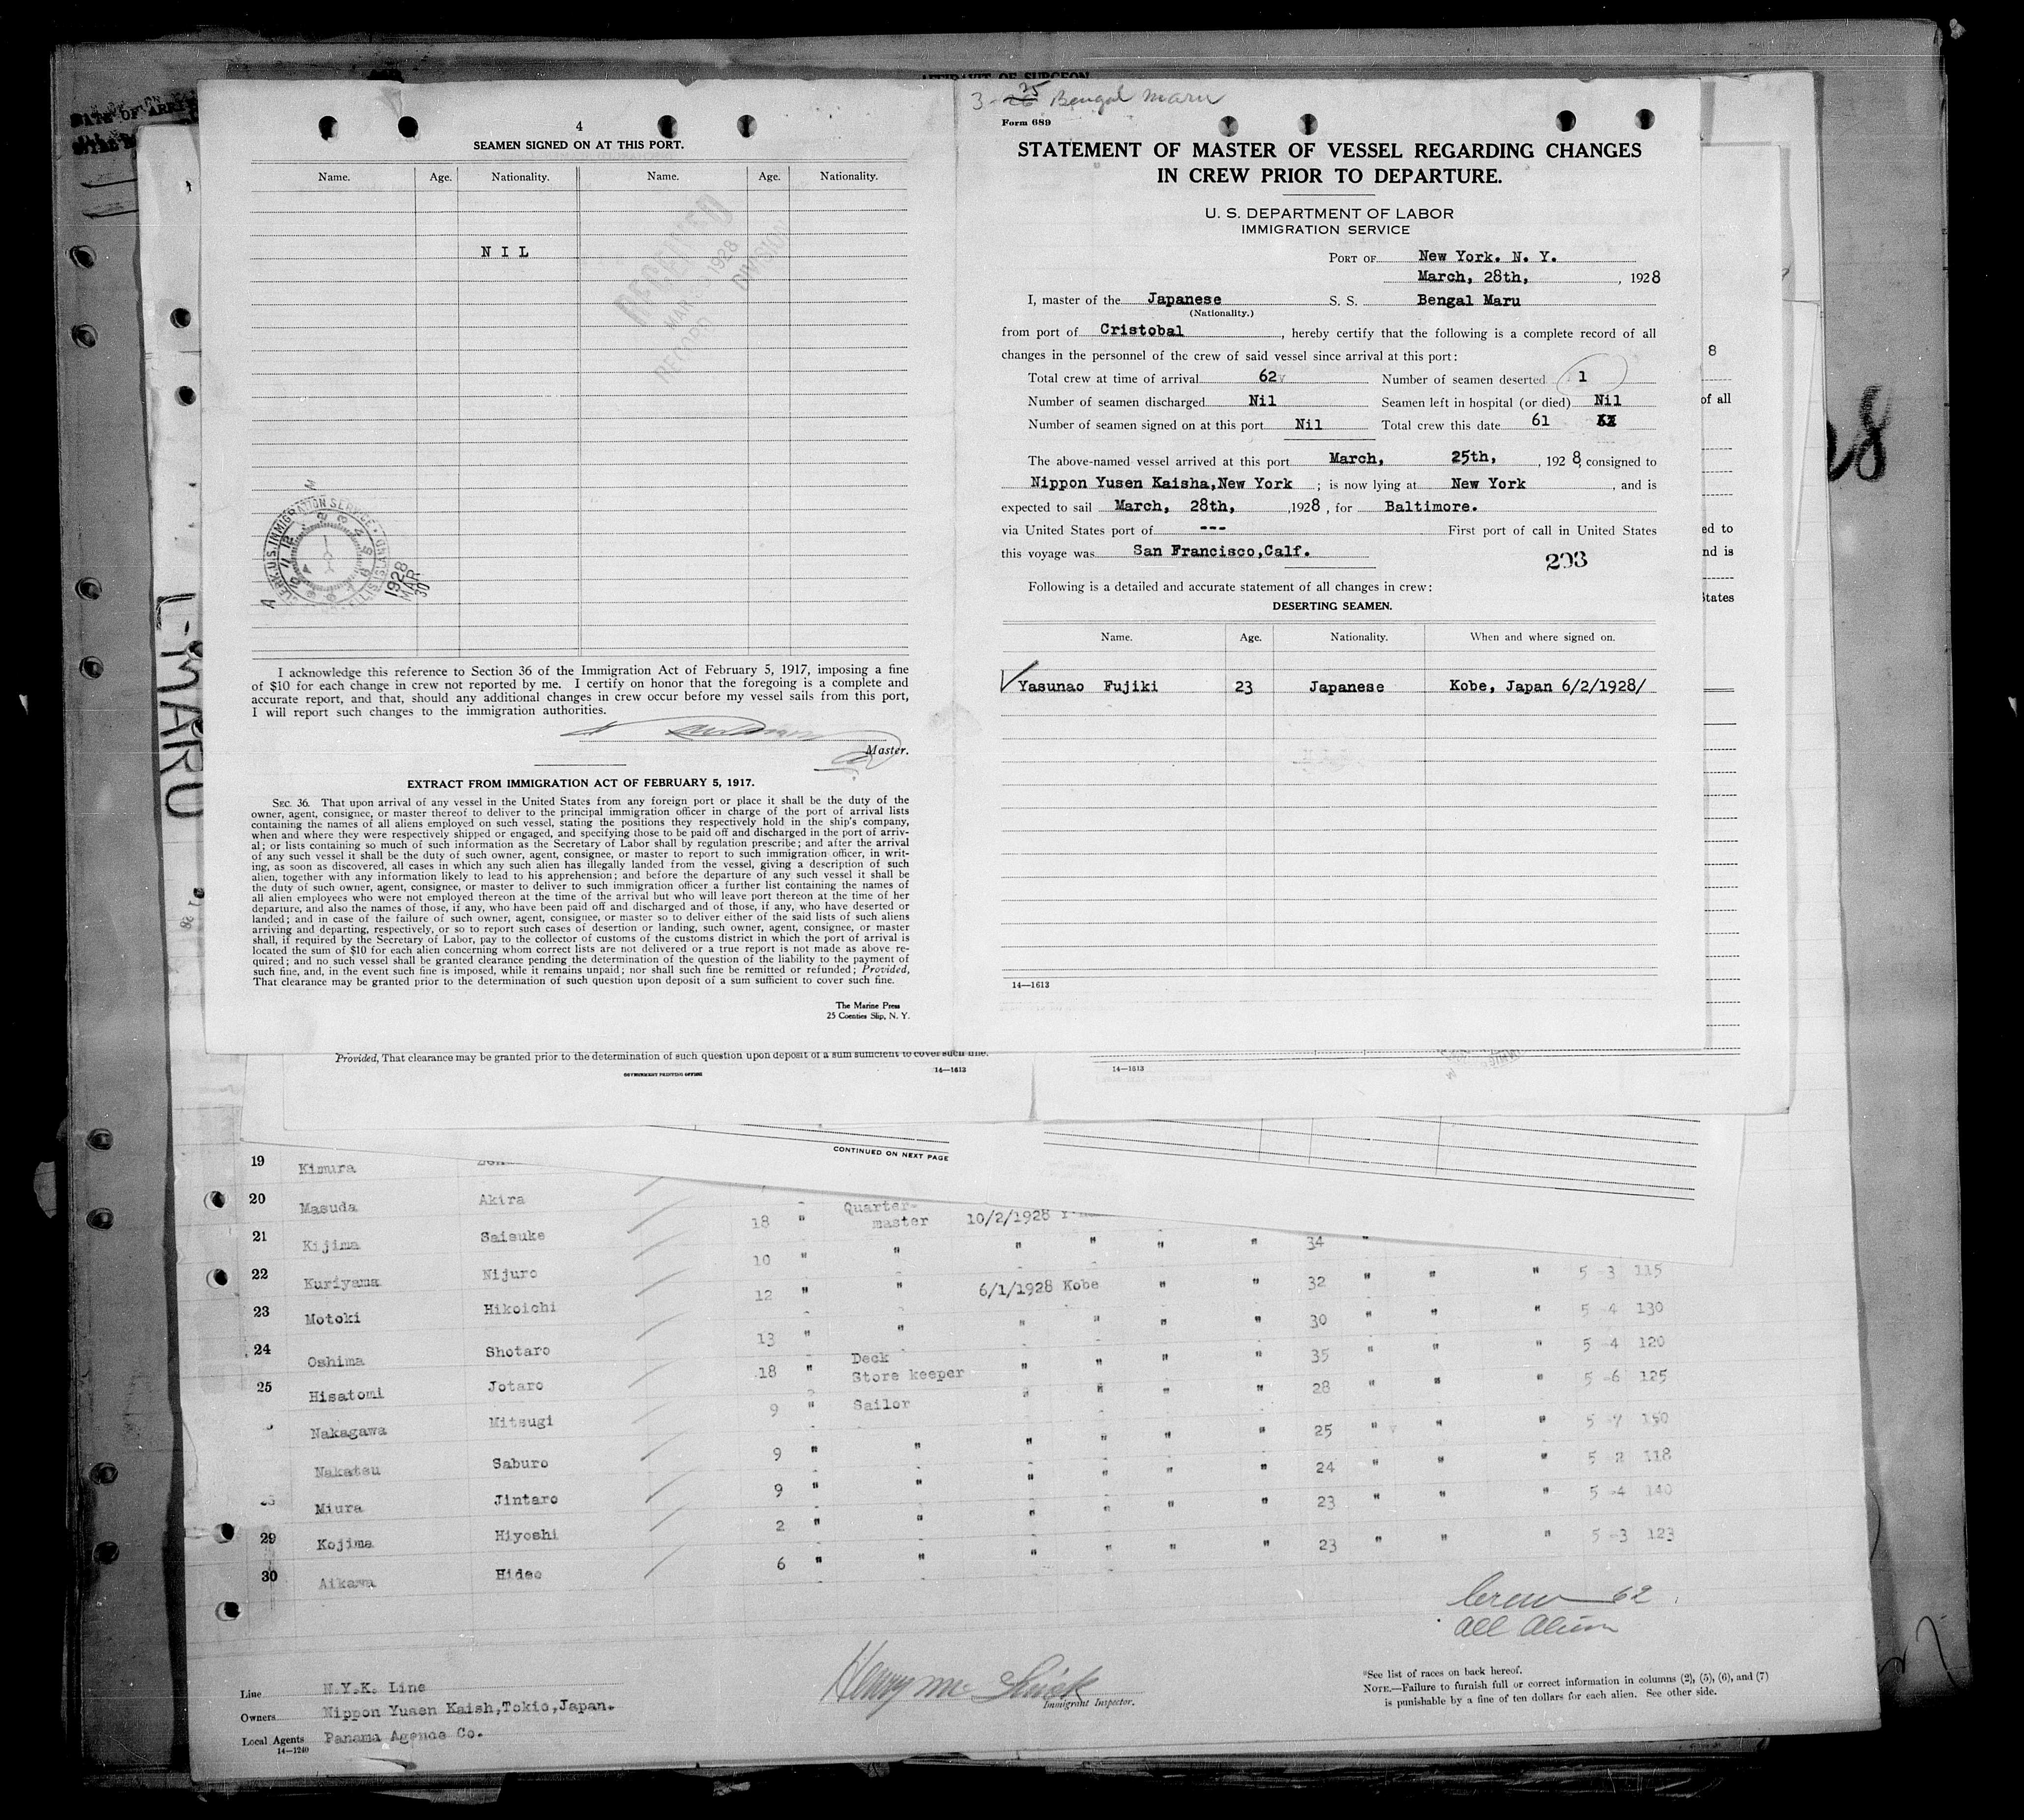 AFFIDAVIT OF SURGEON
3-25 Bengal Maru
4
SEAMEN SIGNED ON AT THIS PORT.
Name. Age. Nationality. Name. Age. Nationality.
NIL
RECEIVED
1928
RECORD DIVISION
U.S. IMMIGRATION SERVICE
1928
MAR
30
I acknowledge this reference to Section 36 of the Immigration Act of February 5, 1917, imposing a fine
of $10 for each change in crew not reported by me. I certify on honor that the foregoing is a complete and
accurate report, and that, should any additional changes in crew occur before my vessel sails from this port,
I will report such changes to the immigration authorities.
Master.
EXTRACT FROM IMMIGRATION ACT OF FEBRUARY 5, 1917.
SEC. 36. That upon arrival of any vessel in the United States from any foreign port or place it shall be the duty of the
owner, agent, consignee, or master thereof to deliver to the principal immigration officer in charge of the port of arrival lists
containing the names of all aliens employed on such vessel, stating the positions they respectively hold in the ship's company,
when and where they were respectively shipped or engaged, and specifying those to be paid off and discharged in the port of arriv-
al; or lists containing so much of such information as the Secretary of Labor shall by regulation prescribe; and after the arrival
of any such vessel it shall be the duty of such owner, agent, consignee, or master to report to such immigration officer, in writ-
ing, as soon as discovered, all cases in which any such alien has illegally landed from the vessel, giving a description of such
alien, together with any information likely to lead to his apprehension; and before the departure of any such vessel it shall be
the duty of such owner, agent, consignee, or master to deliver to such immigration officer a further list containing the names of
all alien employees who were not employed thereon at the time of the arrival but who will leave port thereon at the time of her
departure, and also the names of those, if any, who have been paid off and discharged and of those, if any, who have deserted or
landed; and in case of the failure of such owner, agent, consignee, or master so to deliver either of the said lists of such aliens
arriving and departing, respectively, or so to report such cases of desertion or landing, such owner, agent, consignee, or master
shall, if required by the Secretary of Labor, pay to the collector of customs of the customs district in which the port of arrival is
located the sum of $10 for each alien concerning whom correct lists are not delivered or a true report is not made as above re-
quired; and no such vessel shall be granted clearance pending the determination of the question of the liability to the payment of
such fine, and, in the event such fine is imposed, while it remains unpaid; nor shall such fine be remitted or refunded; Provided,
That clearance may be granted prior to the determination of such question upon deposit of a sum sufficient to cover such fine.
The Marine Press
25 Coenties Slip, N. Y.
Form 689
STATEMENT OF MASTER OF VESSEL REGARDING CHANGES
IN CREW PRIOR TO DEPARTURE.
U. S. DEPARTMENT OF LABOR
IMMIGRATION SERVICE
PORT OF New York. N. Y.
March, 28th, , 1928
I, master of the Japanese S. S. Bengal Maru
(Nationality.)
from port of Cristobal , hereby certify that the following is a complete record of all
changes in the personnel of the crew of said vessel since arrival at this port:
Total crew at time of arrival 62 Number of seamen deserted 1
Number of seamen discharged Nil Seamen left in hospital (or died) Nil
Number of seamen signed on at this port Nil Total crew this date 61
The above-named vessel arrived at this port March, 25th, , 1928, consigned to
Nippon Yusen Kaisha,New York ; is now lying at New York , and is
expected to sail March, 28th, ,1928 , for Baltimore.
via United States port of --- First port of call in United States
this voyage was San Francisco,Calf.
203
Following is a detailed and accurate statement of all changes in crew:
DESERTING SEAMEN.
Name. Age. Nationality. When and where signed on.
Yasunao Fujiki 23 Japanese Kobe, Japan 6/2/1928/
14—1613
8
of all
ed to
nd is
States
L-MARU
Provided, That clearance may be granted prior to the determination of such question upon deposit of a sum sufficient to cover such fine.
GOVERNMENT PRINTING OFFICE 14—1613
14—1613
CONTINUED ON NEXT PAGE
19 Kimura
20 Masuda Akira 18 " Quarter-master 10/2/1928
21 Kijima Saisuke 10 " " " " " " 34 "
22 Kuriyama Nijuro 12 " " 6/1/1928 Kobe " " 32 " " " 5 -3 115
23 Motoki Hikoichi 13 " " " " " " 30 " " " 5 -4 130
24 Oshima Shotaro 18 " Deck Store keeper " " " " 35 " " " 5 -4 120
25 Hisatomi Jotaro 9 " Sailor " " " " 28 " " " 5 -6 125
Nakagawa Mitsugi 9 " " " " " " 25 " " " 5 -7 150
Nakatsu Saburo 9 " " " " " " 24 " " " 5 2 118
Miura Jintaro 2 " " " " " " 23 " " " 5 -4 140
29 Kojima Hiyoshi 6 " " " " " " 23 " " " 5 -3 123
30 Aikawa Hideo
Crew 62
All Alien
Line N.Y.K. Line
Owners Nippon Yusen Kaish,Tokio,Japan.
Local Agents Panama Agence Co.
14—1240
Immigrant Inspector.
*See list of races on back hereof.
NOTE.—Failure to furnish full or correct information in columns (2), (5), (6), and (7)
is punishable by a fine of ten dollars for each alien. See other side.